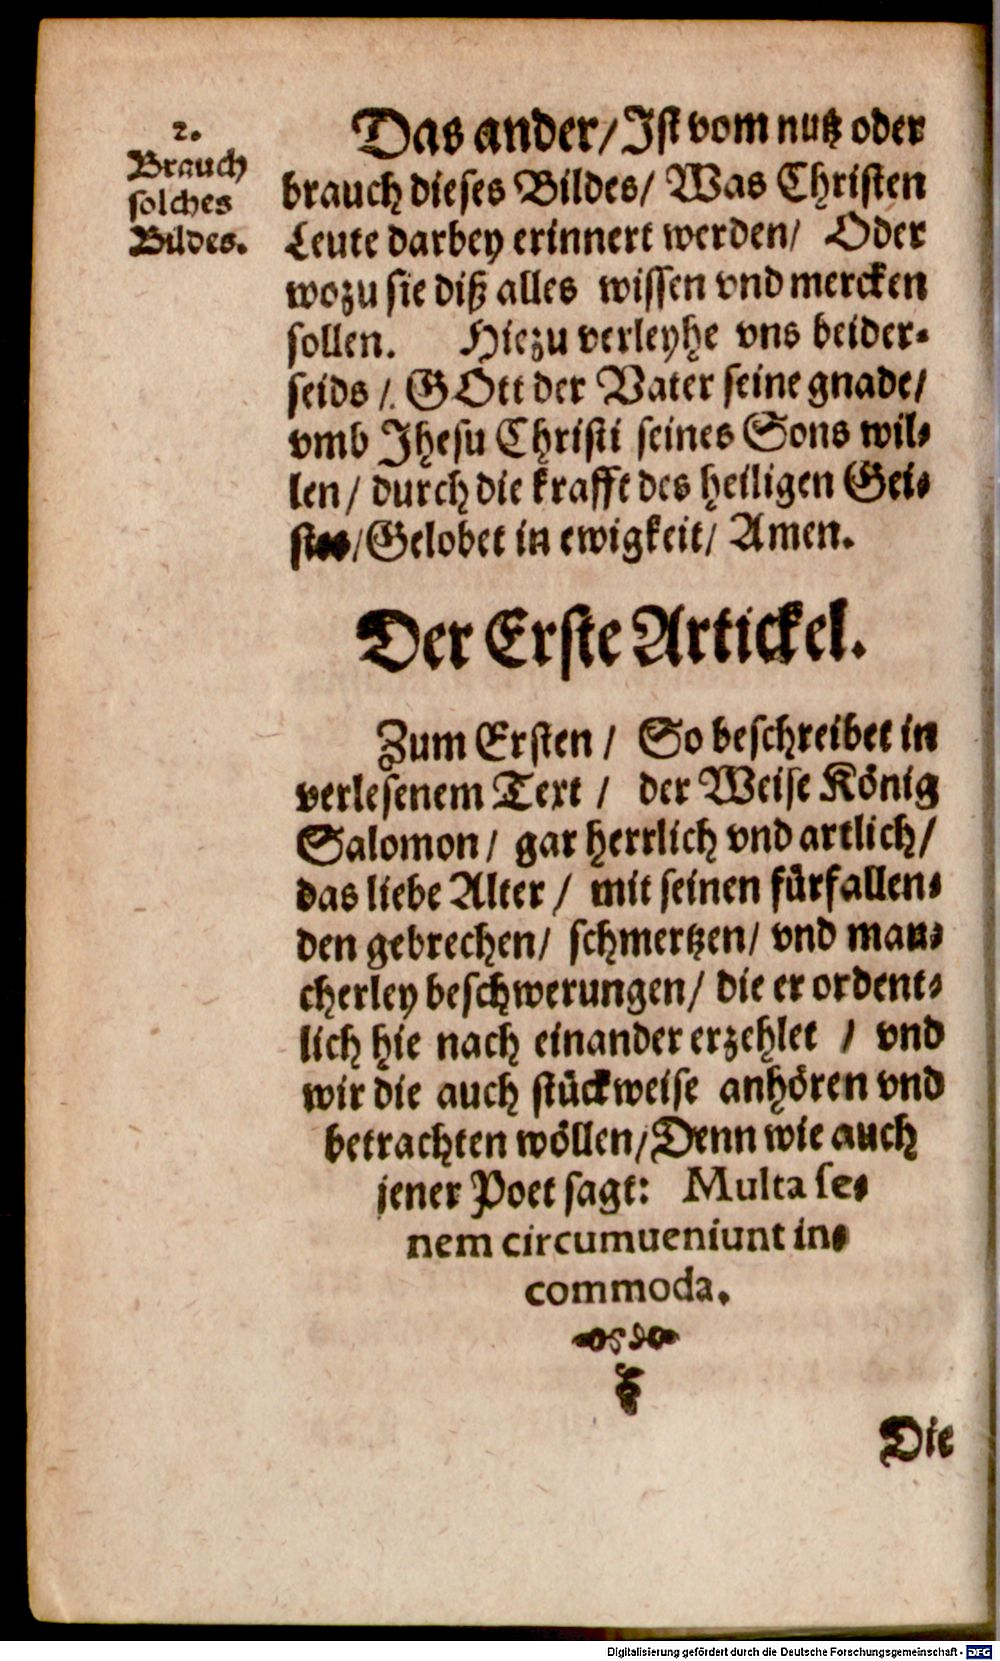 2.
Brauch
solches
Bildes.
Das ander/ Ist vom nutz oder
brauch dieses Bildes/ Was Christen
Leute darbey erinnert werden/ Oder
wozu sie diß alles wissen vnd mercken
sollen. Hiezu verleyhe vns beider-
seids /. GOtt der Vater seine gnade/
vmb Jhesu Christi seines Sons wil-
len/ durch die krafft des heiligen Gei-
stes/ Gelobet in ewigkeit/ Amen.
Der Erste Artickel.
Zum Ersten / So beschreibet in
verlesenem Text / der Weise König
Salomon/ gar herrlich vnd artlich/
das liebe Alter / mit seinen fürfallen-
den gebrechen/ schmertzen/ vnd man-
cherley beschwerungen/ die er ordent-
lich hie nach einander erzehlet / vnd
wir die auch stückweise anhören vnd
betrachten wöllen/ Denn wie auch
jener Poet sagt: Multa se-
nem circumueniunt in-
commoda.
Die
Digitalisierung gefördert durch die Deutsche Forschungsgemeinschaft - DFG